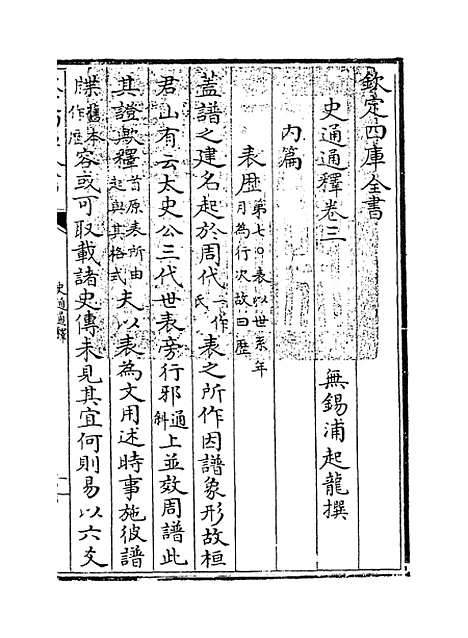 欽定四庫全書
史通通釋卷三
無錫浦起龍撰
内篇
表歴第七○表以世系年月為行次故曰歴
葢譜之建名起於周代一作氏表之所作因譜象形故桓
君山有云太史公三代世表旁行邪通斜上並效周譜此
其證歟釋首原表所由起與其格式夫以表為文用述時事施彼譜
牒舊本作歴容或可取載諸史傳未見其宜何則易以六爻
史通通釋